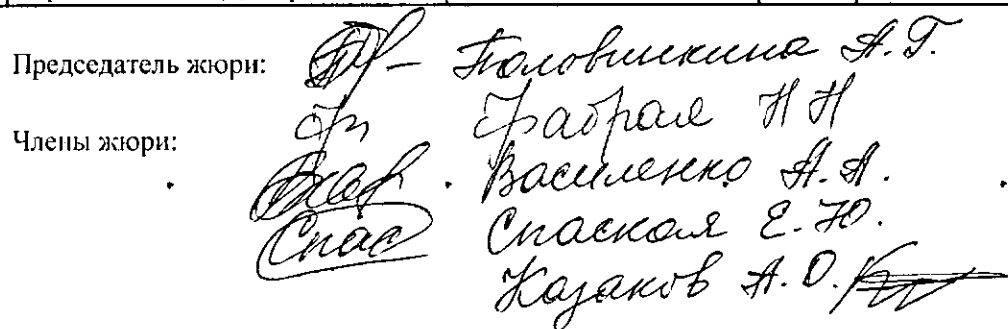 Председатель жюри: Половинкина А.Г.
Члены жюри: Фабрая Н Н
Василенко А.А.
Спас Спаская Е.Ю.
Казаков А.О.